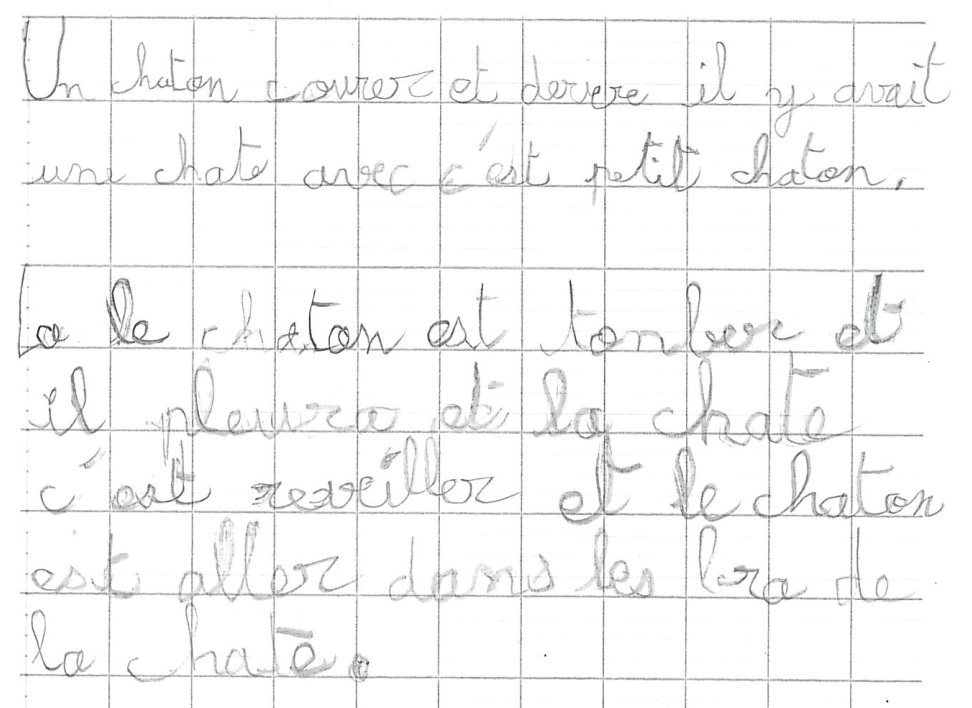 Un chaton courer et deriere il y avait
une chate avec c'est petit chaton.
La le chaton est tomber et
il pleura et la chate
c'est reveiller et le chaton
est aller dans les bra de
la chate.